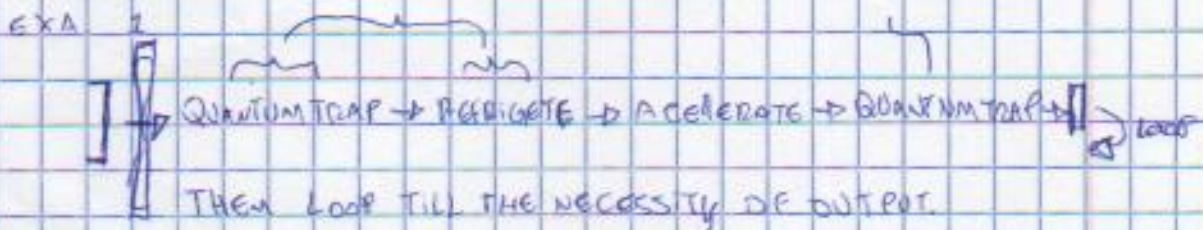 EXA 1
QUANTUM TRAP → REFRIGETE → ACELERATE → QUANTUM TRAP → LOOP
THEN LOOP TILL THE NECESSITY OF OUTPUT.